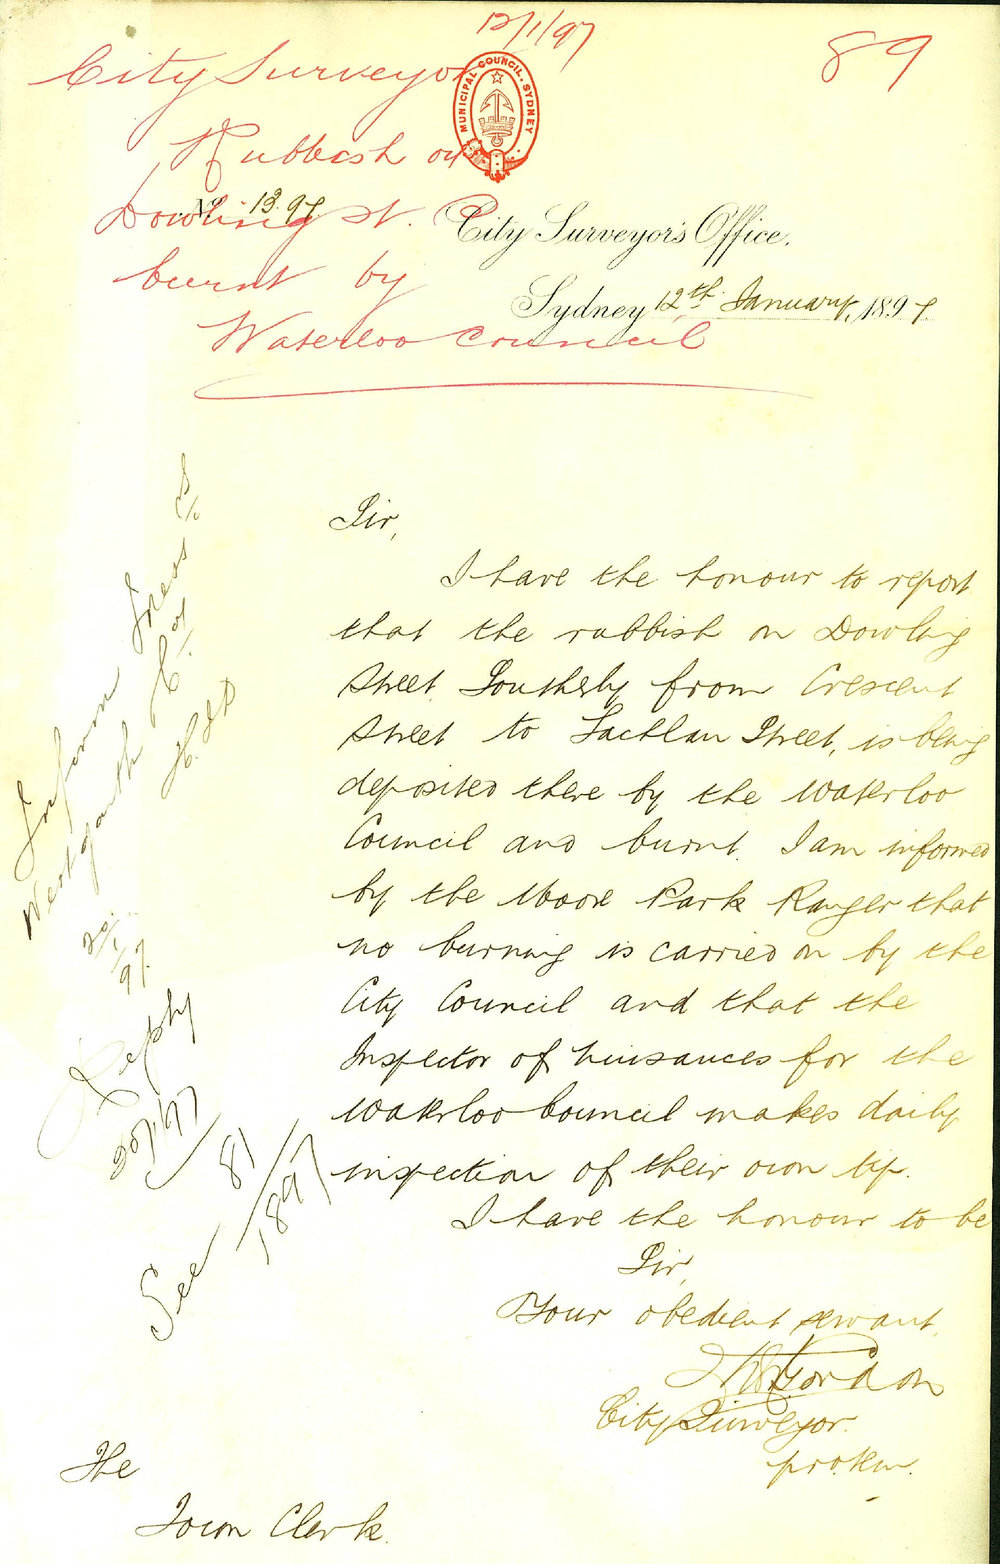 12/1/97
89
City Surveyor
MUNICIPAL COUNCIL. SYDNEY
Rubbish on
Dowling St.
burnt by
Waterloo Council
No 13.97
City Surveyor's Office,
Sydney 12th January, 1897
Sir,
I have the honour to report
that the rubbish on Dowling
Street Southerly from Crescent
Street to Lachlan Street, is being
deposited there by the Waterloo
Council and burnt. I am informed
by the Moore Park Ranger that
no burning is carried on by the
City Council and that the
Inspector of Nuisances for the
Waterloo Council makes daily
inspection of their own tip.
I have the honour to be
Sir,
Your obedient servant,
Gordon
City Surveyor.
pro tem.
The
Town Clerk.
Inform
Westgarth &
20/1/97
20/1/97
See 81/1897